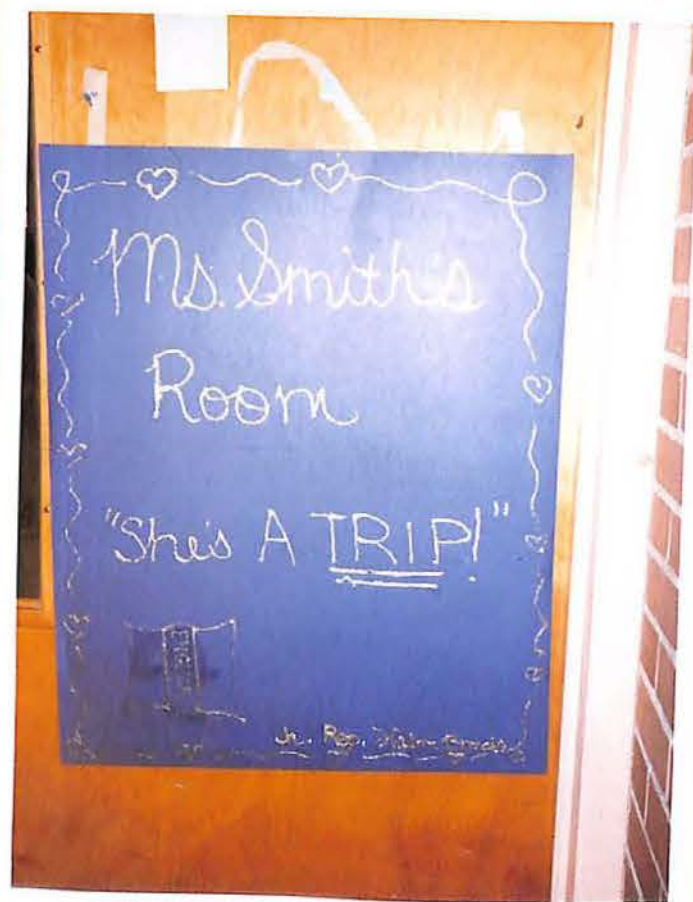 Ms. Smith's
Room
"She's A TRIP!"
Jr. Rep.